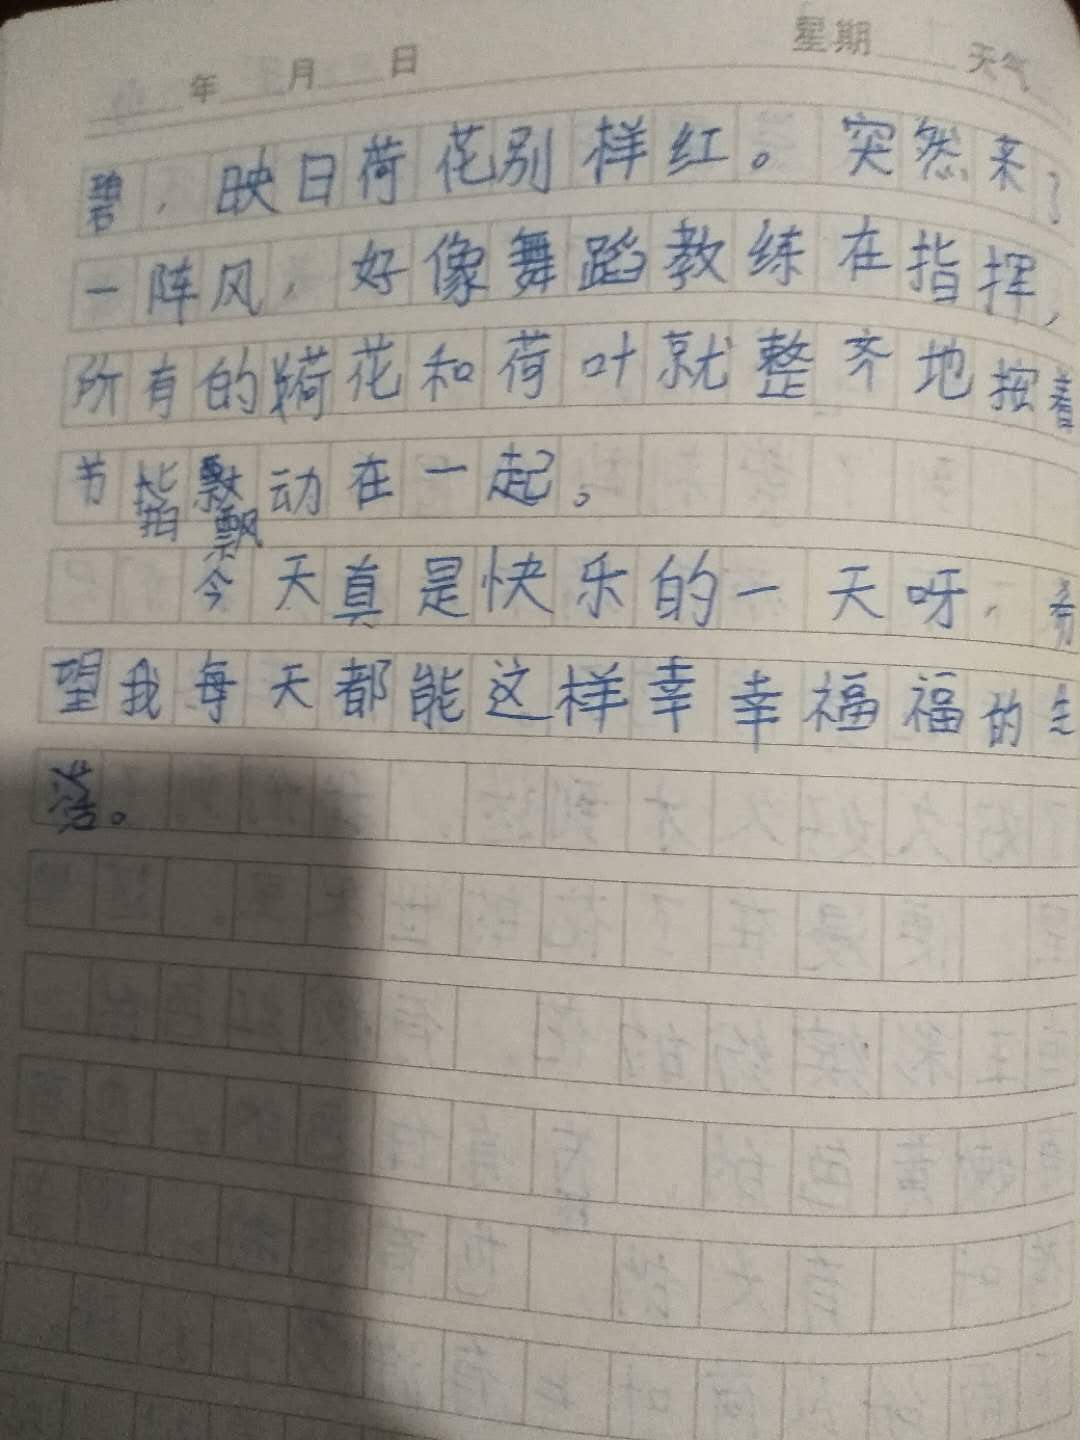 年 月 日 星期 天气
碧，映日荷花别样红。突然来了
一阵风，好像舞蹈教练在指挥，
所有的荷花和荷叶就整齐地按着
节 飘动在一起。
今天真是快乐的一天呀，希
望我每天都能这样幸幸福福的生
活。